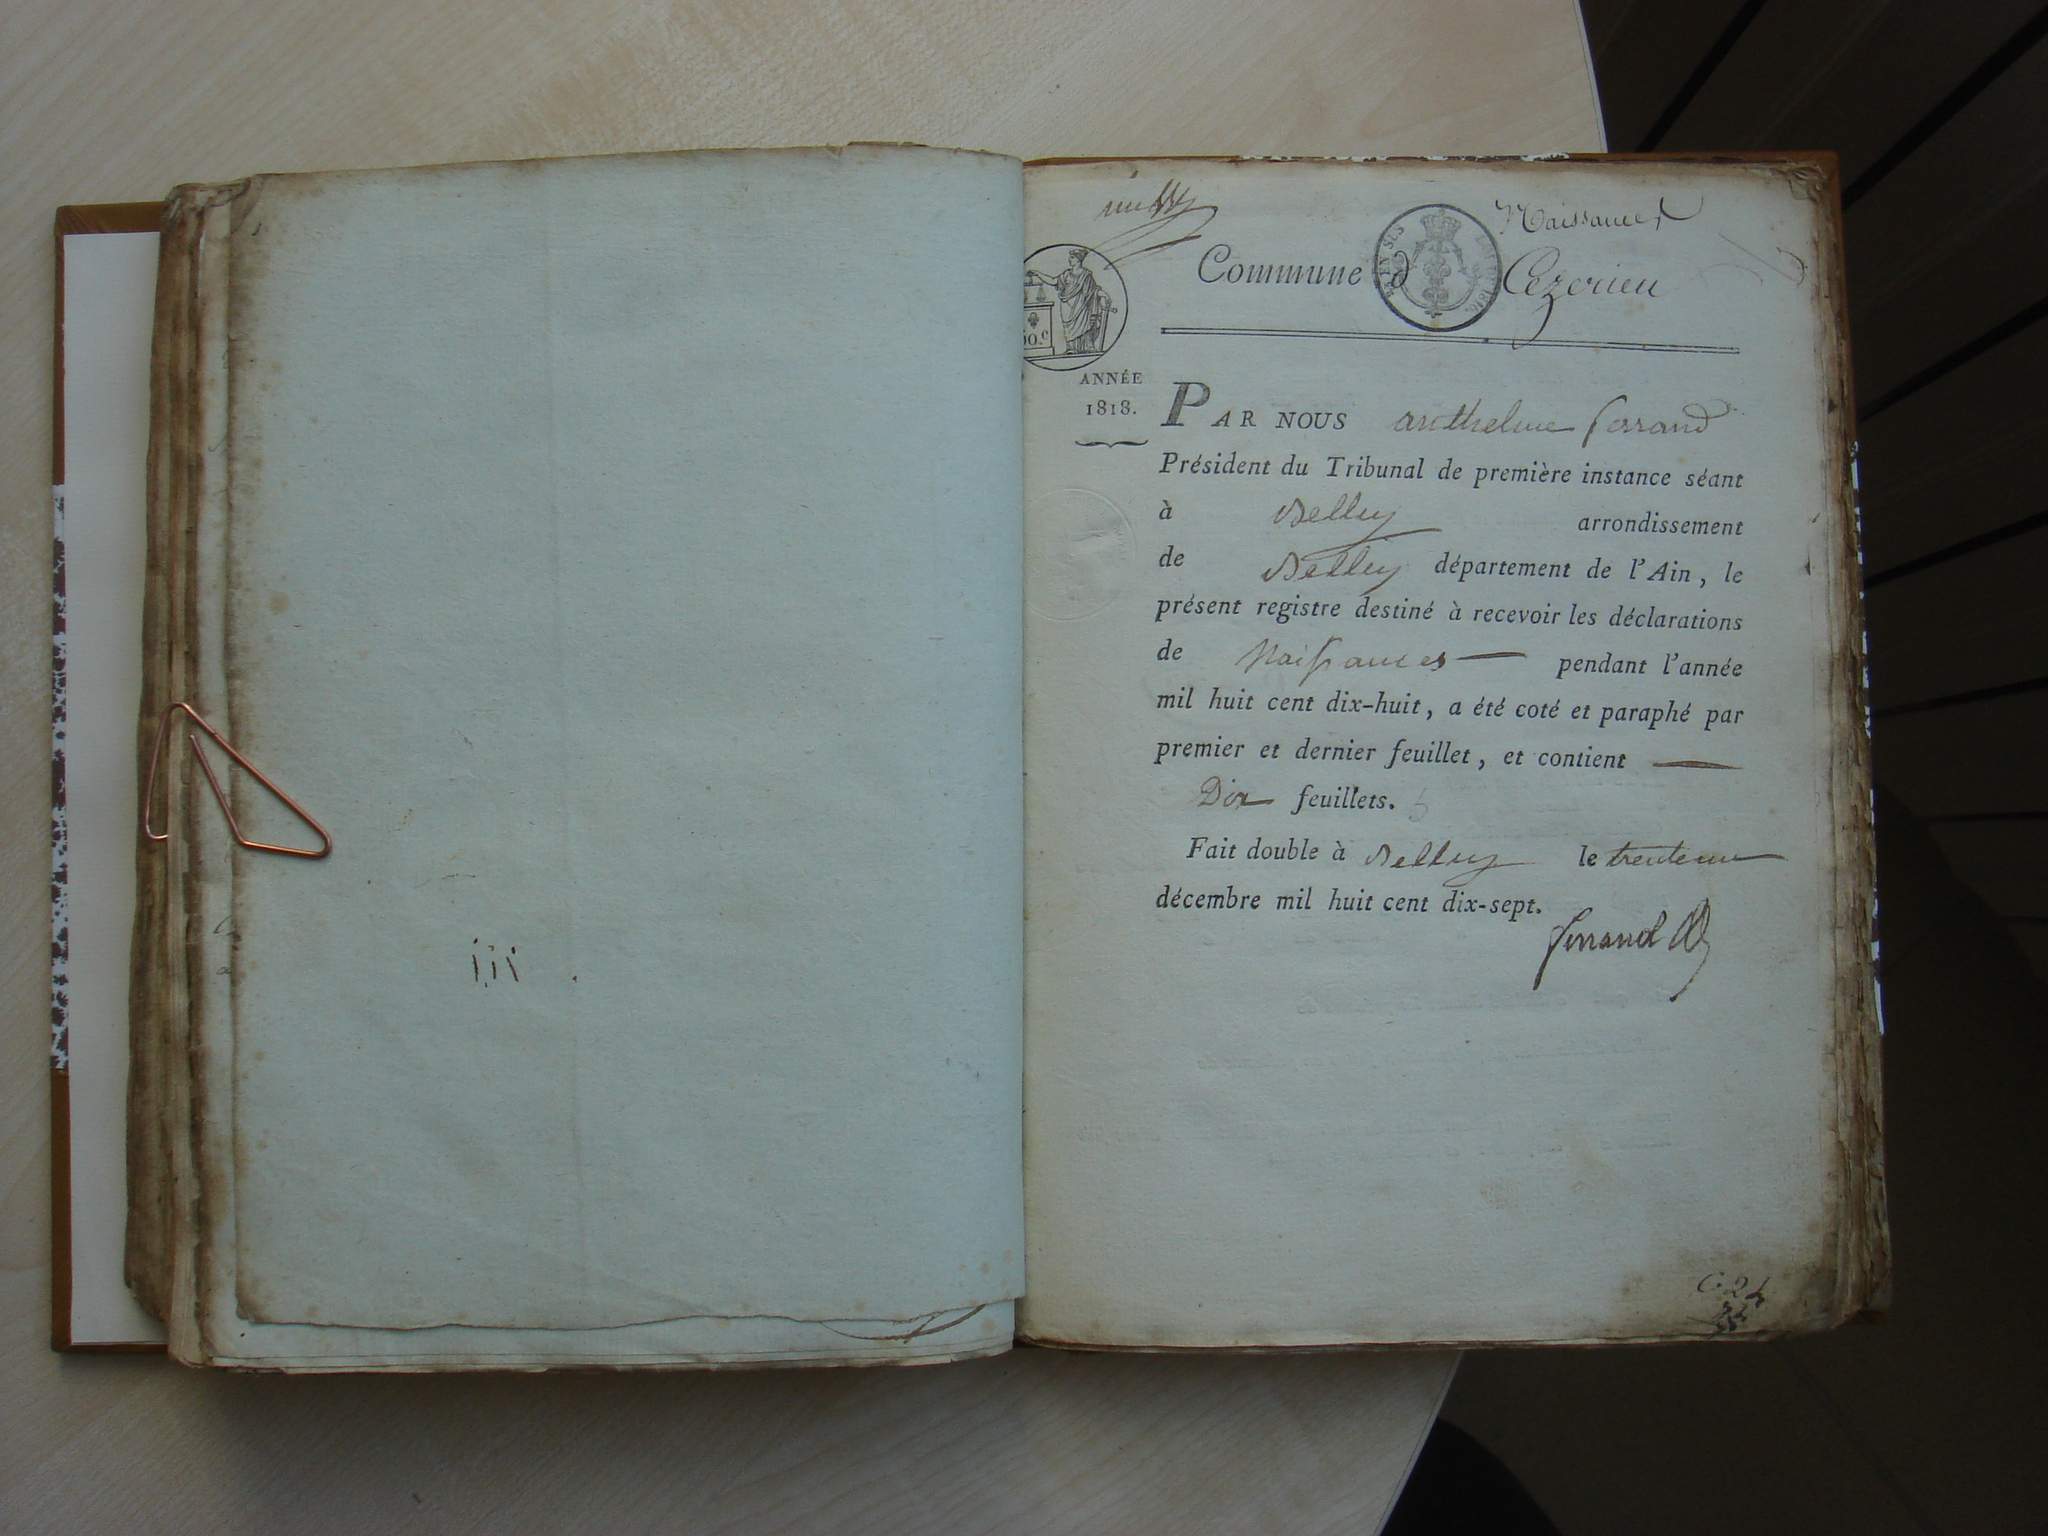 Naissances
Commune d Cezerieu
50.c
ANNÉE
1818.
PAR NOUS anthelme ferrand
Président du Tribunal de première instance séant
à Belley arrondissement
de Belley département de l'Ain, le
présent registre destiné à recevoir les déclarations
de Naissances pendant l'année
mil huit cent dix-huit, a été coté et paraphé par
premier et dernier feuillet, et contient
Dix feuillets.
Fait double à Belley le trente un
décembre mil huit cent dix-sept.
ferrand